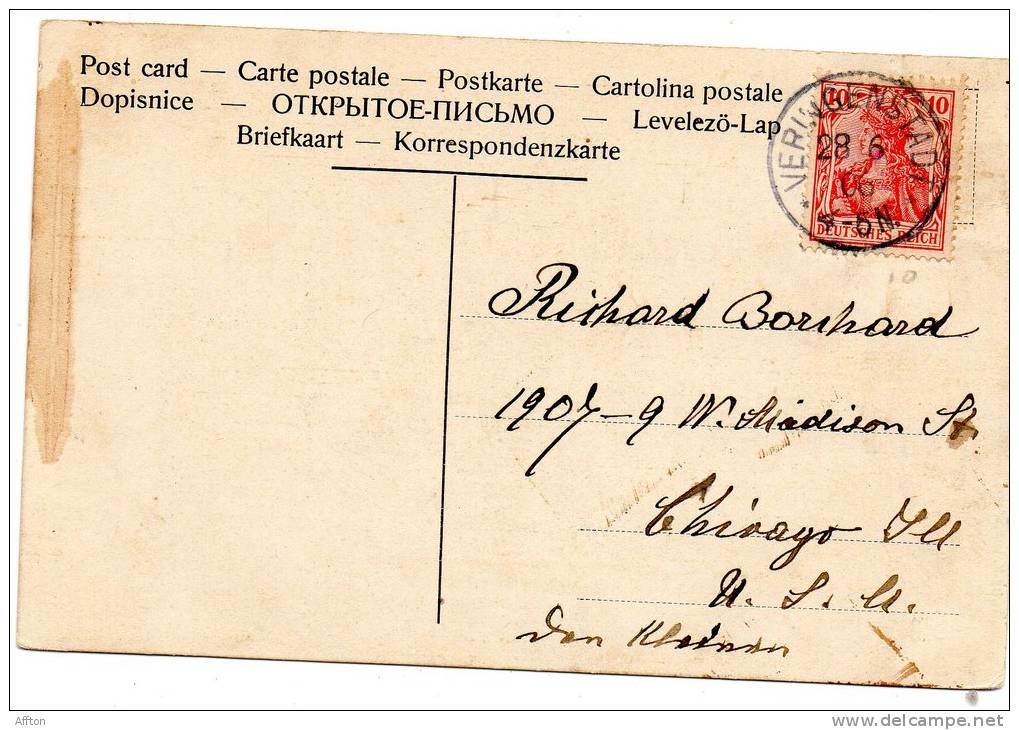 Post card — Carte postale — Postkarte — Cartolina postale
Dopisnice — ОТКРЫТОЕ-ПИСЬМО — Levelező-Lap
Briefkaart — Korrespondenzkarte
10 10
DEUTSCHES REICH
* VERINGENSTADT
28 6
06
-6 N.
10
Richard Borchard
1907-9 W. Madison St.
Chicago Ill
U. S. A.
Affton
delcampe.net